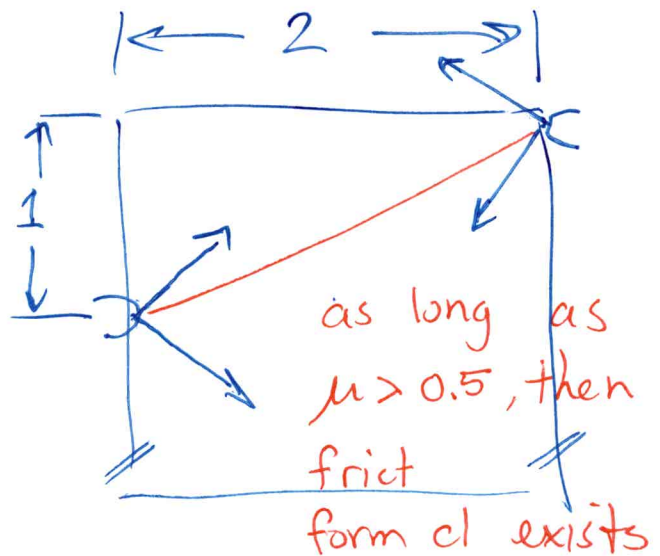 2
1
as long as
μ > 0.5, then
frict
form cl exists